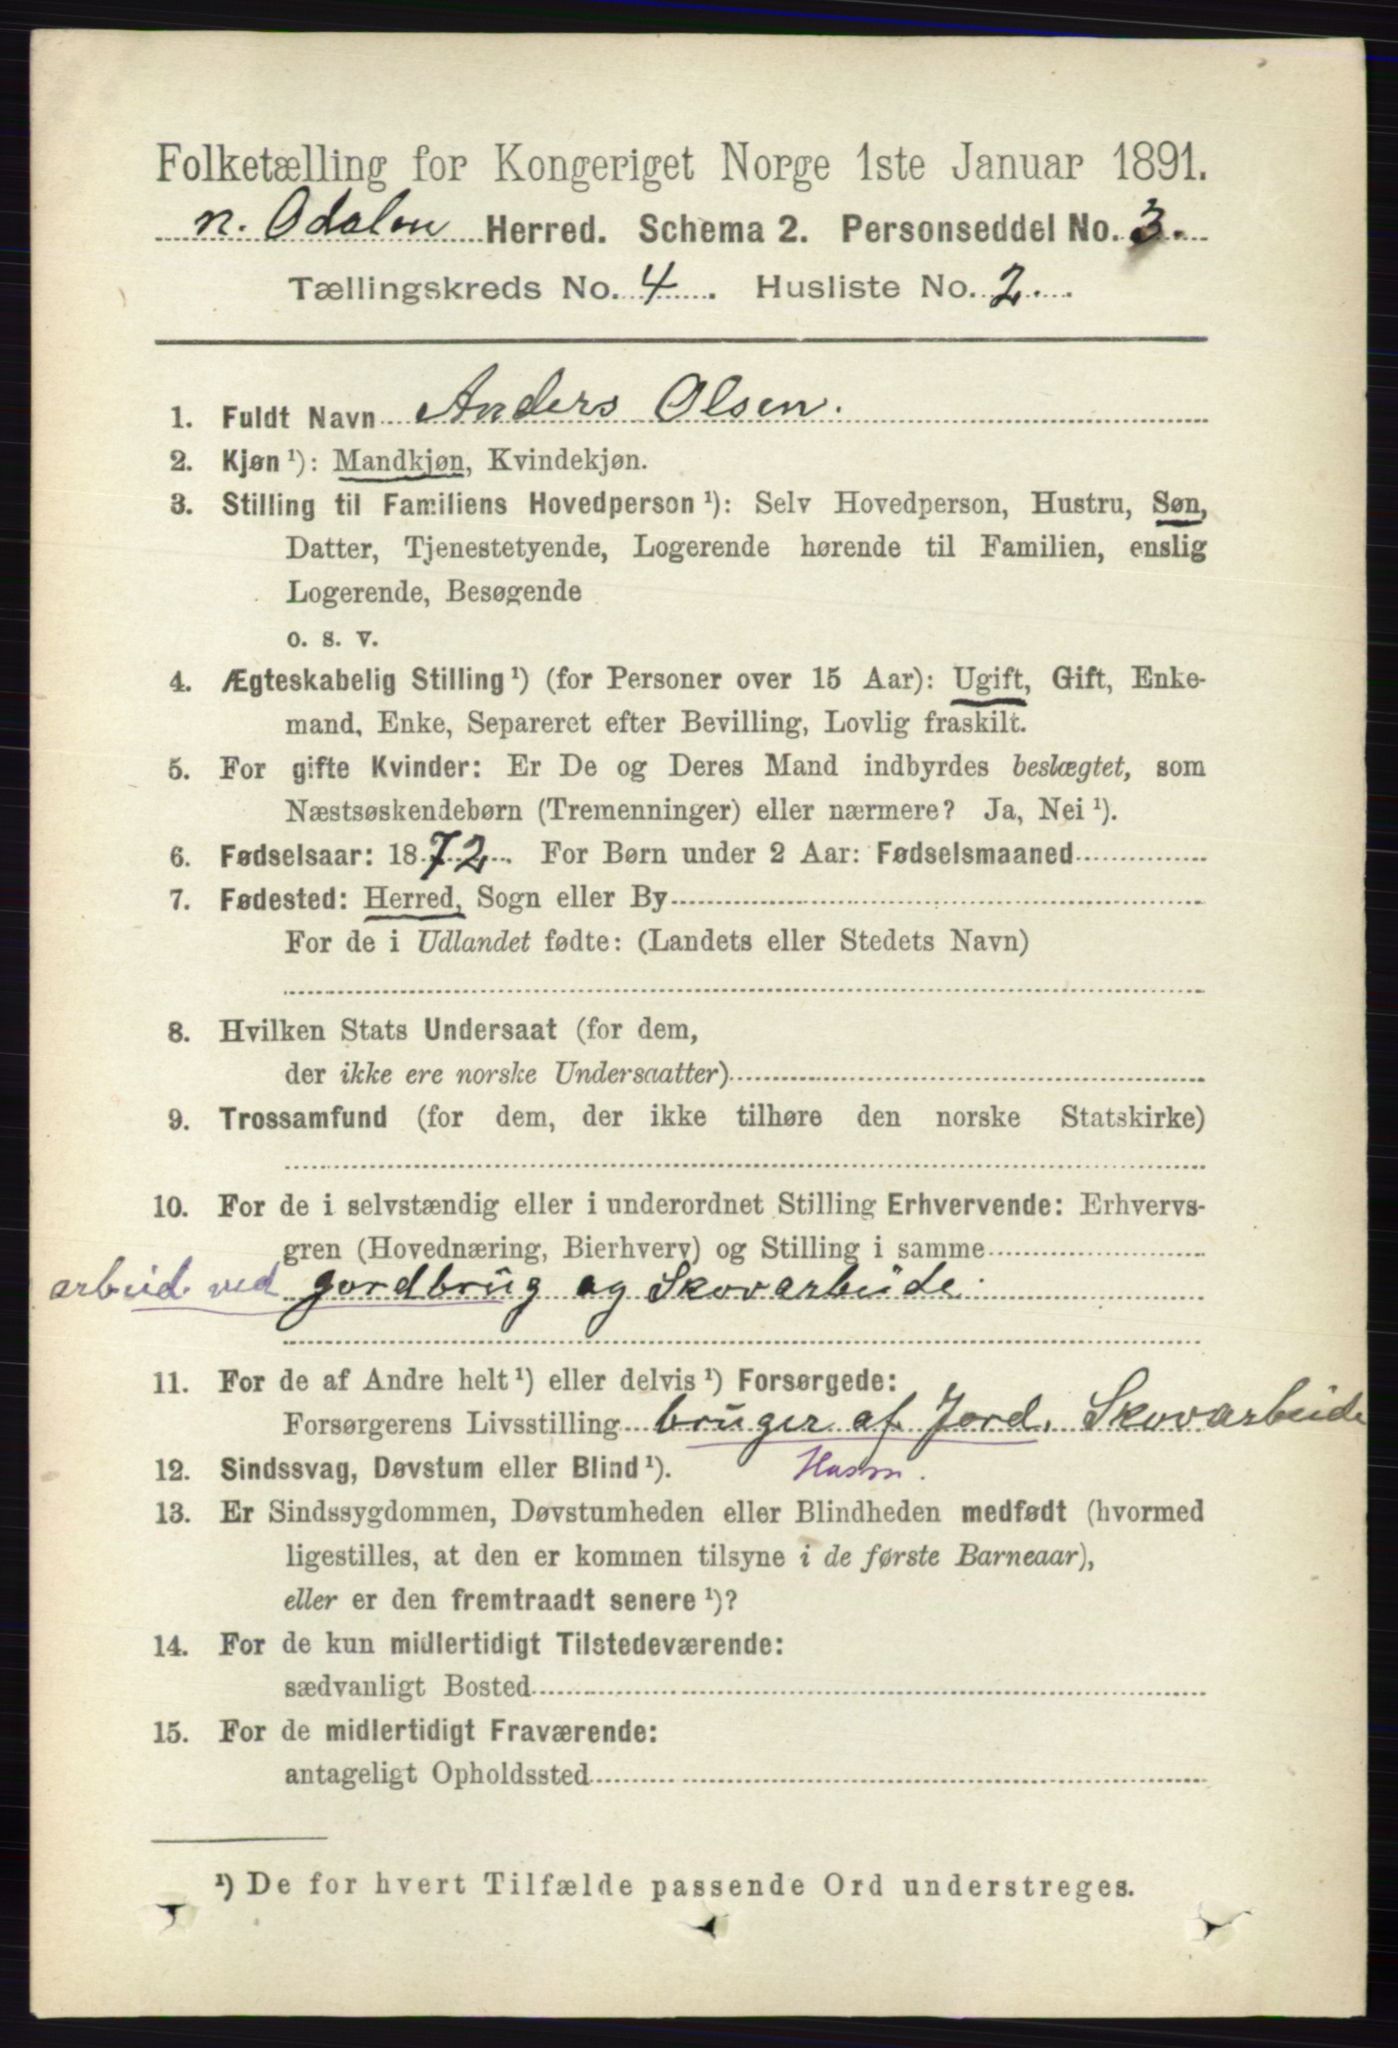 Folketælling for Kongeriget Norge 1ste Januar 1891.
n. Odalen Herred. Schema 2. Personseddel No. 3.
Tællingskreds No. 4. Husliste No. 2.
1. Fuldt Navn Anders Olsen.
2. Kjøn ¹): Mandkjøn, Kvindekjøn.
3. Stilling til Familiens Hovedperson ¹): Selv Hovedperson, Hustru, Søn,
Datter, Tjenestetyende, Logerende hørende til Familien, enslig
Logerende, Besøgende
o. s. v.
4. Ægteskabelig Stilling ¹) (for Personer over 15 Aar): Ugift, Gift, Enke-
mand, Enke, Separeret efter Bevilling, Lovlig fraskilt.
5. For gifte Kvinder: Er De og Deres Mand indbyrdes beslægtet, som
Næstsøskendebørn (Tremenninger) eller nærmere? Ja, Nei ¹).
6. Fødselsaar: 1872. For Børn under 2 Aar: Fødselsmaaned
7. Fødested: Herred, Sogn eller By
For de i Udlandet fødte: (Landets eller Stedets Navn)
8. Hvilken Stats Undersaat (for dem,
der ikke ere norske Undersaatter)
9. Trossamfund (for dem, der ikke tilhøre den norske Statskirke)
10. For de i selvstændig eller i underordnet Stilling Erhvervende: Erhvervs-
gren (Hovednæring, Bierhverv) og Stilling i samme
arbeid ved gordbrug og Skovarbeide.
11. For de af Andre helt ¹) eller delvis ¹) Forsørgede:
Forsørgerens Livsstilling bruger af Jord, Skovarbeide
12. Sindssvag, Døvstum eller Blind ¹). Husm.
13. Er Sindssygdommen, Døvstumheden eller Blindheden medfødt (hvormed
ligestilles, at den er kommen tilsyne i de første Barneaar),
eller er den fremtraadt senere ¹)?
14. For de kun midlertidigt Tilstedeværende:
sædvanligt Bosted
15. For de midlertidigt Fraværende:
antageligt Opholdssted
¹) De for hvert Tilfælde passende Ord understreges.